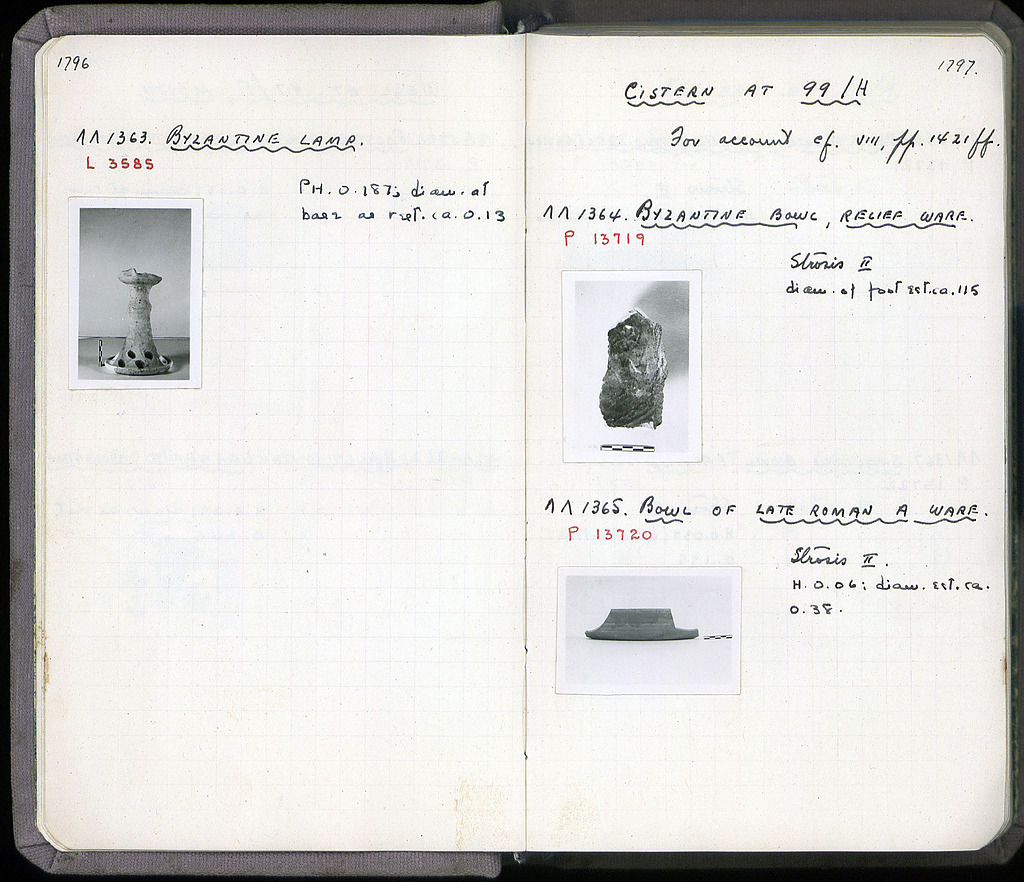 1796
ΛΛ 1363. BYZANTINE LAMP.
L 3585
PH. 0.187; diam. at
base as rest. ca. 0.13
1797.
CISTERN AT 99/H
For account cf. VIII, ff. 1421 ff.
ΛΛ 1364. BYZANTINE BOWL, RELIEF WARE.
P 13719
Strosis II
diam. of foot est. ca. 115
ΛΛ 1365. BOWL OF LATE ROMAN A WARE.
P 13720
Strosis II.
H. 0.06; diam. est. ca.
0.38.